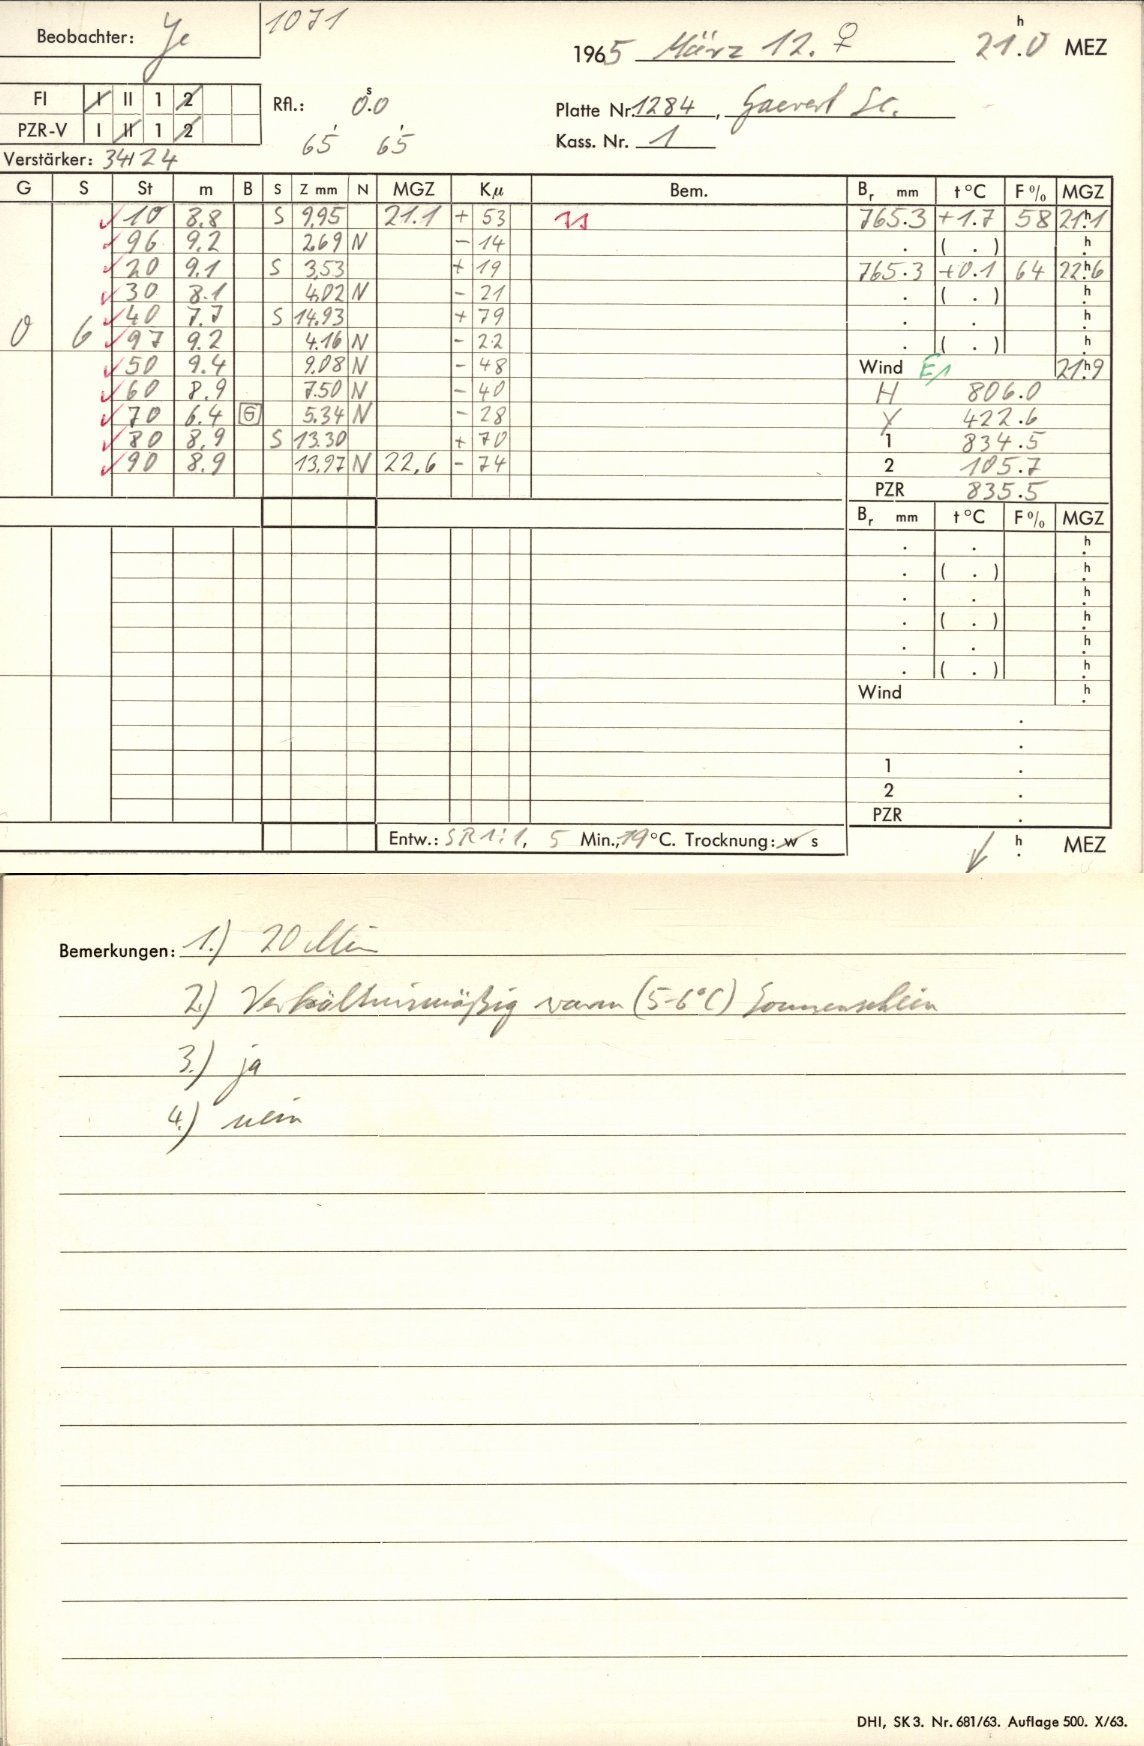 Beobachter: Je 1071
1965 März 12. ♀ 21.0 h MEZ
FI I II 1 2 Rfl.: 0.0 s
Platte Nr. 1284, Gaevert Sc.
PZR-V I II 1 2 65 65
Kass. Nr. 1
Verstärker: 34/24
G S St m B S Z mm N MGZ Kμ Bem. Br mm t °C F % MGZ
10 8.8 S 9,95 21.1 + 53 765.3 +1.7 58 21h1
96 9.2 2.69 N - 14 . ( . ) h
20 9.1 S 3,53 + 19 765.3 +0.1 64 22h6
30 8.1 4,02 N - 21 . ( . ) h
0 6 40 7.7 S 14.93 + 79 . . h
97 9.2 4.16 N - 22 . ( . ) h
50 9.4 9.08 N - 48 Wind E1 21h9
60 8.9 7.50 N - 40 H 806.0
70 6.4 G 5.34 N - 28 Y 422.6
80 8.9 S 13.30 + 70 1 834.5
90 8.9 13,97 N 22,6 - 74 2 105.7
PZR 835.5
Br mm t °C F % MGZ
. . h
. ( . ) h
. . h
. ( . ) h
. . h
. ( . ) h
Wind h
.
.
1 .
2 .
PZR .
Entw.: SR 1:1, 5 Min., 19 °C. Trocknung: w s
h . MEZ
Bemerkungen: 1.) 20 Min
2.) Verhältnismäßig warm (5-6°C) Sonnenschein
3.) ja
4.) nein
DHI, SK 3. Nr. 681/63. Auflage 500. X/63.